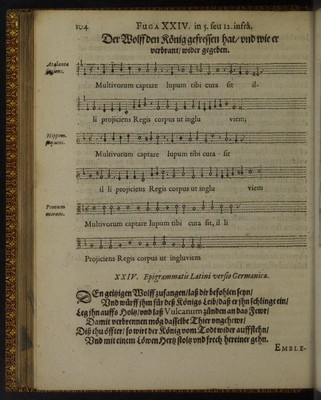 104 FUGA XXIV. in 5. seu 12. infrà.
Der Wolff den König gefressen hat/ vnd wie er
verbrant/ wider gegeben.
Atalanta
fugiens.
Multivorum captare lupum tibi cura sit il-
li projiciens Regis corpus ut inglu viem;
Hippom.
sequens.
Multivorum captare lupum tibi cura sit
il li projiciens Regis corpus ut inglu viem
Pomum
morans.
Multivorum captare lupum tibi cura sit, il li
Projiciens Regis corpus ut ingluviem
XXIV. Epigrammatis Latini versio Germanica.
DEn geitzigen Wolff zufangen/ laß dir befohlen seyn/
Vnd würff jhm für deß Königs Leib/ daß er jhn schlinge ein/
Leg jhn auffs Holtz/ vnd laß Vulcanum zünden an das Fewr/
Damit verbrennen mög dasselbe Thier vngehewr/
Diß thu öffter/ so wirt der König vom Todt wider auffstehn/
Vnd mit einem Löwen Hertz stoltz vnd frech hereiner gehn.
EMBLE-